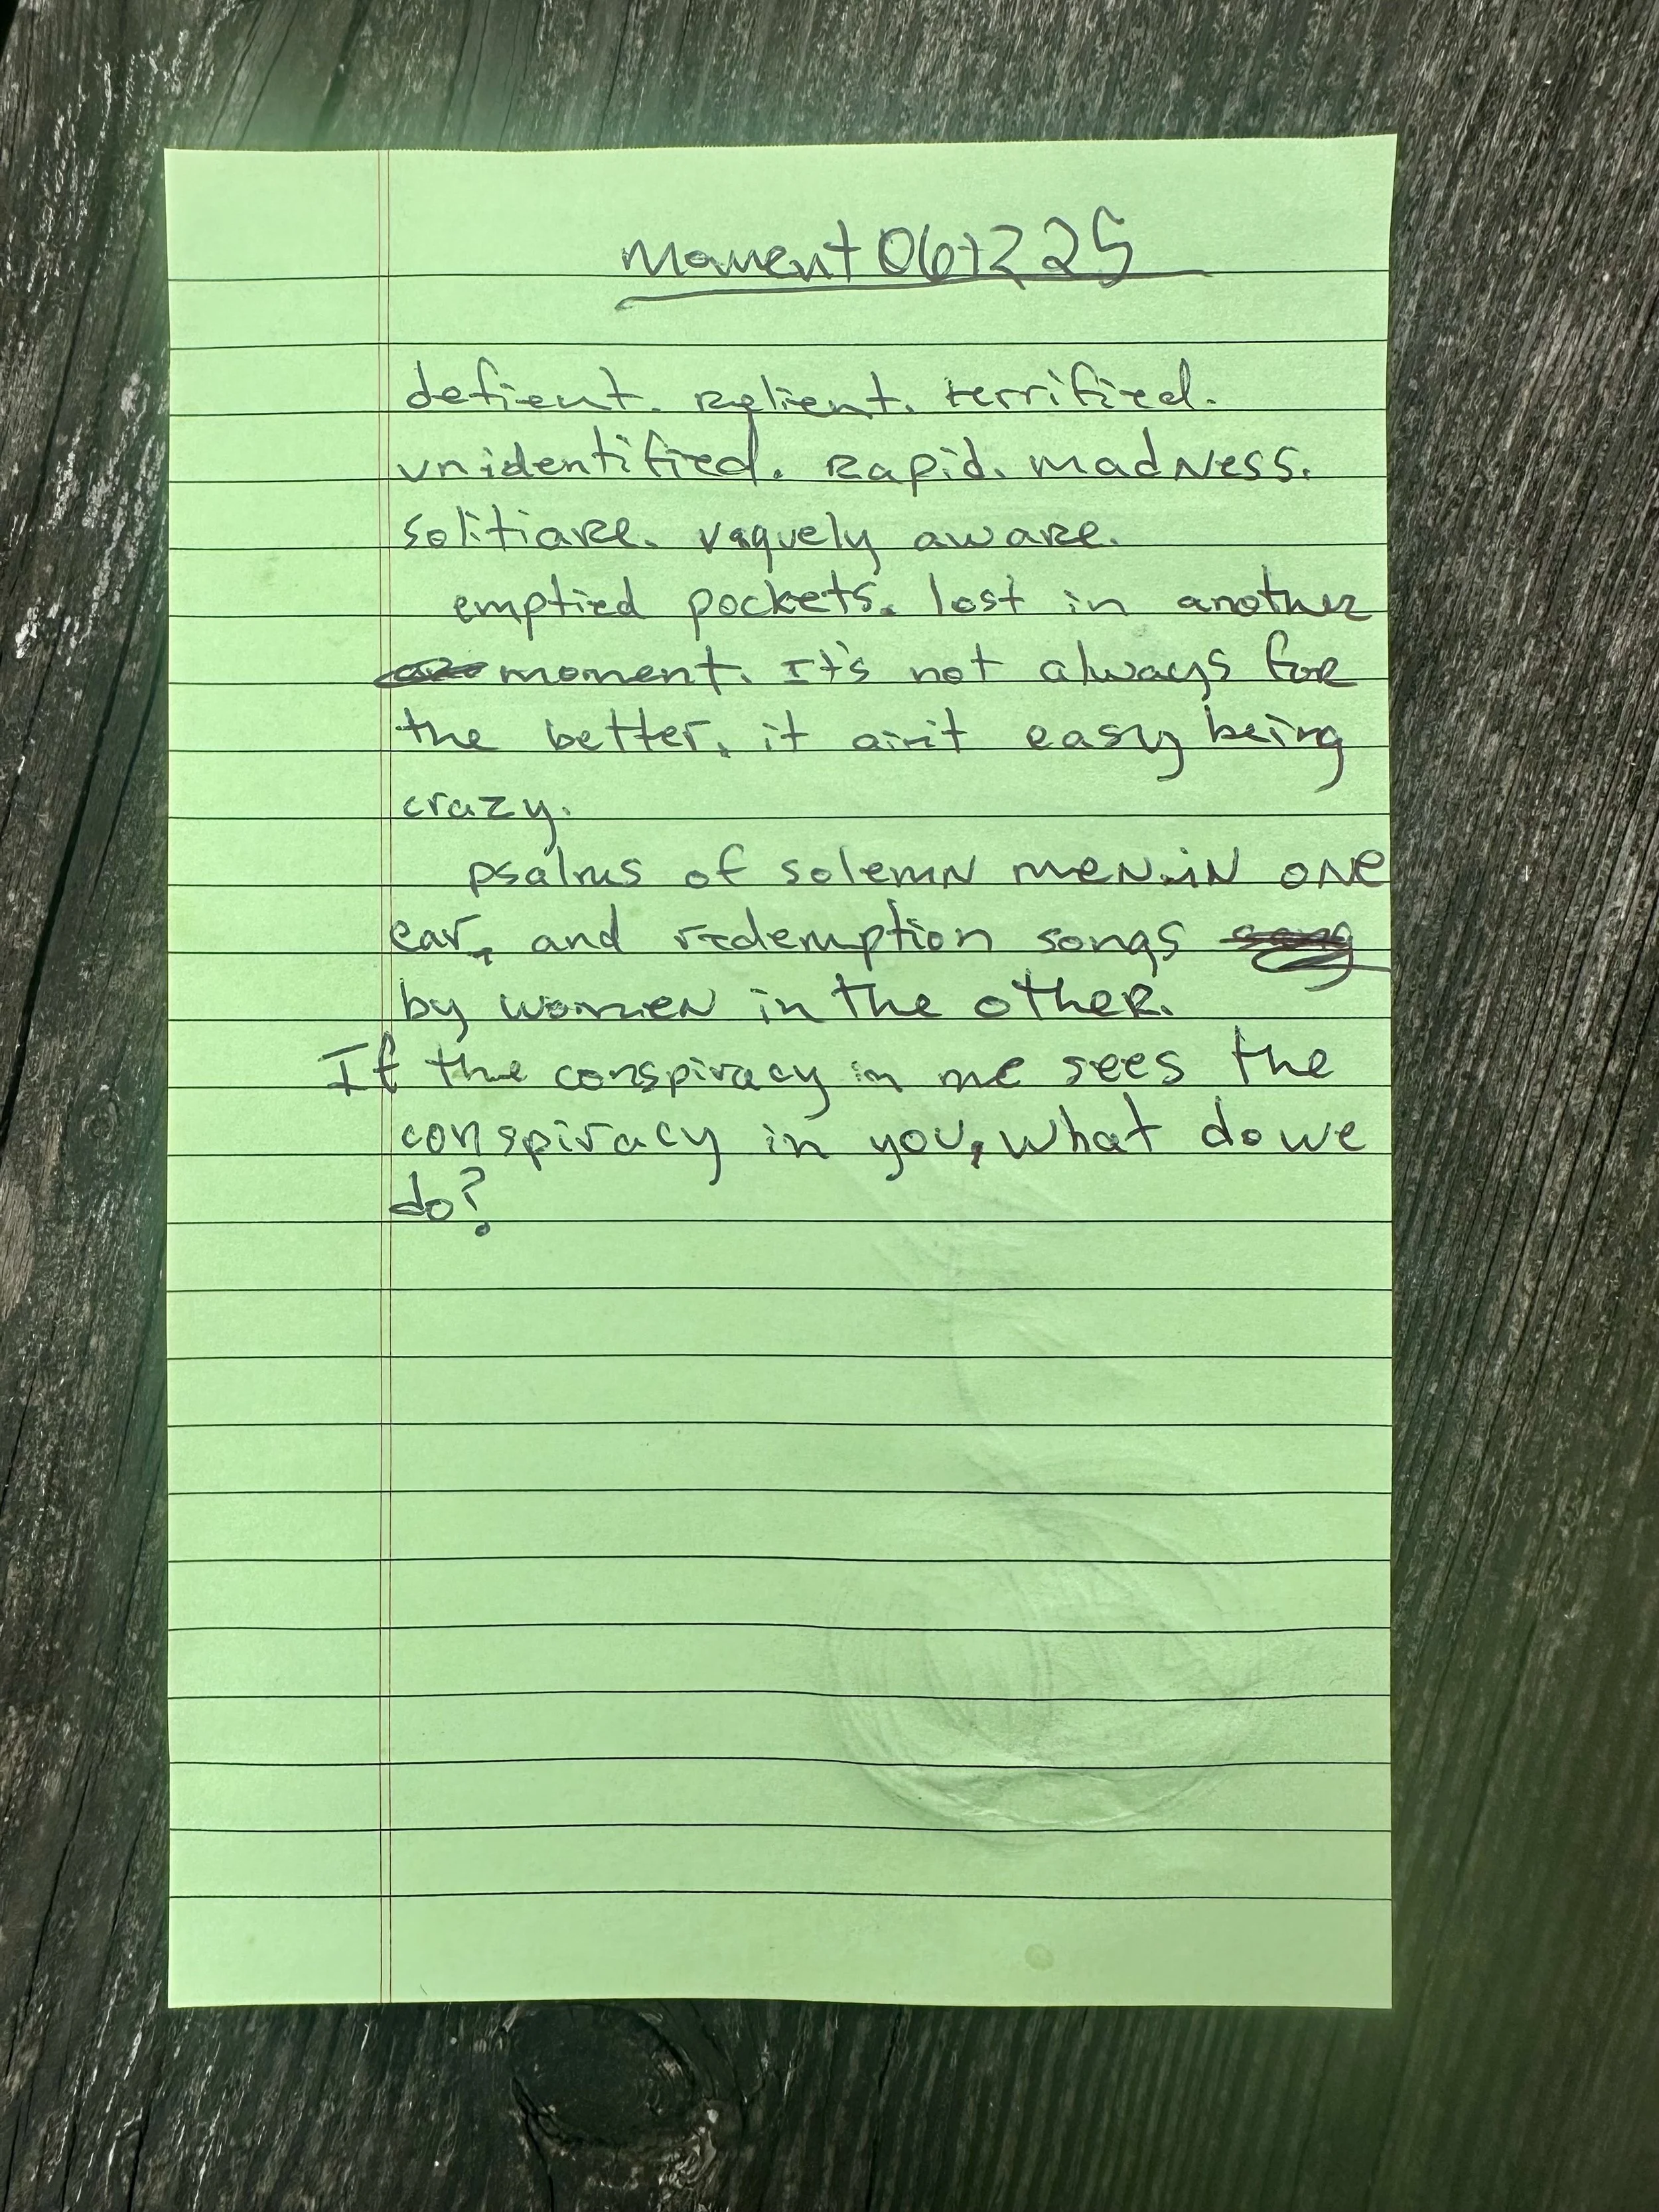 Moment 061225
defient. Relient. terrified.
unidentified. Rapid. madness.
solitiare. vaguely aware.
emptied pockets. lost in another
moment. It's not always for
the better. it ain't easy being
crazy.
psalms of solemn men in one
ear, and redemption songs
by women in the other.
If the conspiracy in me sees the
conspiracy in you, what do we
do?